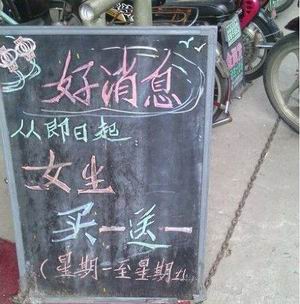 好消息
从即日起
女生
买一送一
(星期一至星期五